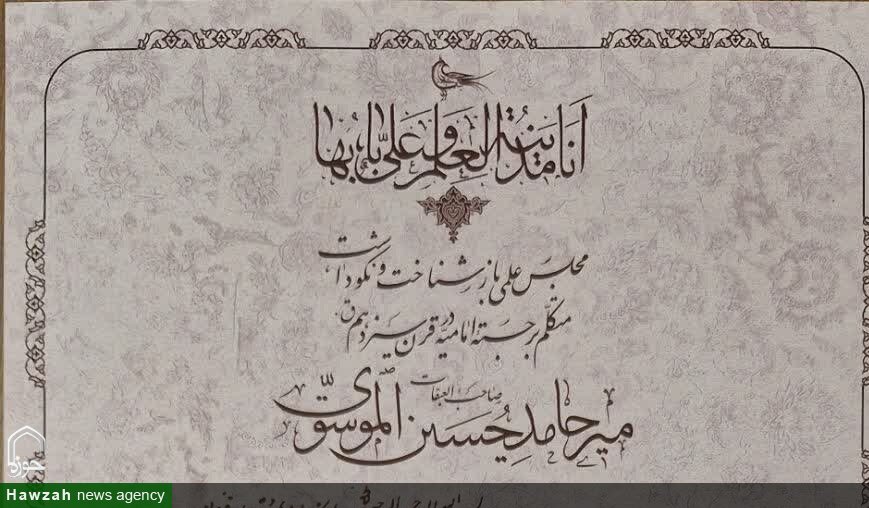 أنا مدينة العلم و علیّ بابها
مجلس علمی بازشناخت و نکوداشت
متکلّم برجستهٔ امامیّه در قرن سیزدهم ق.
صاحب العبقات
میر حامد حسین الموسوّی
حوزه
Hawzah news agency